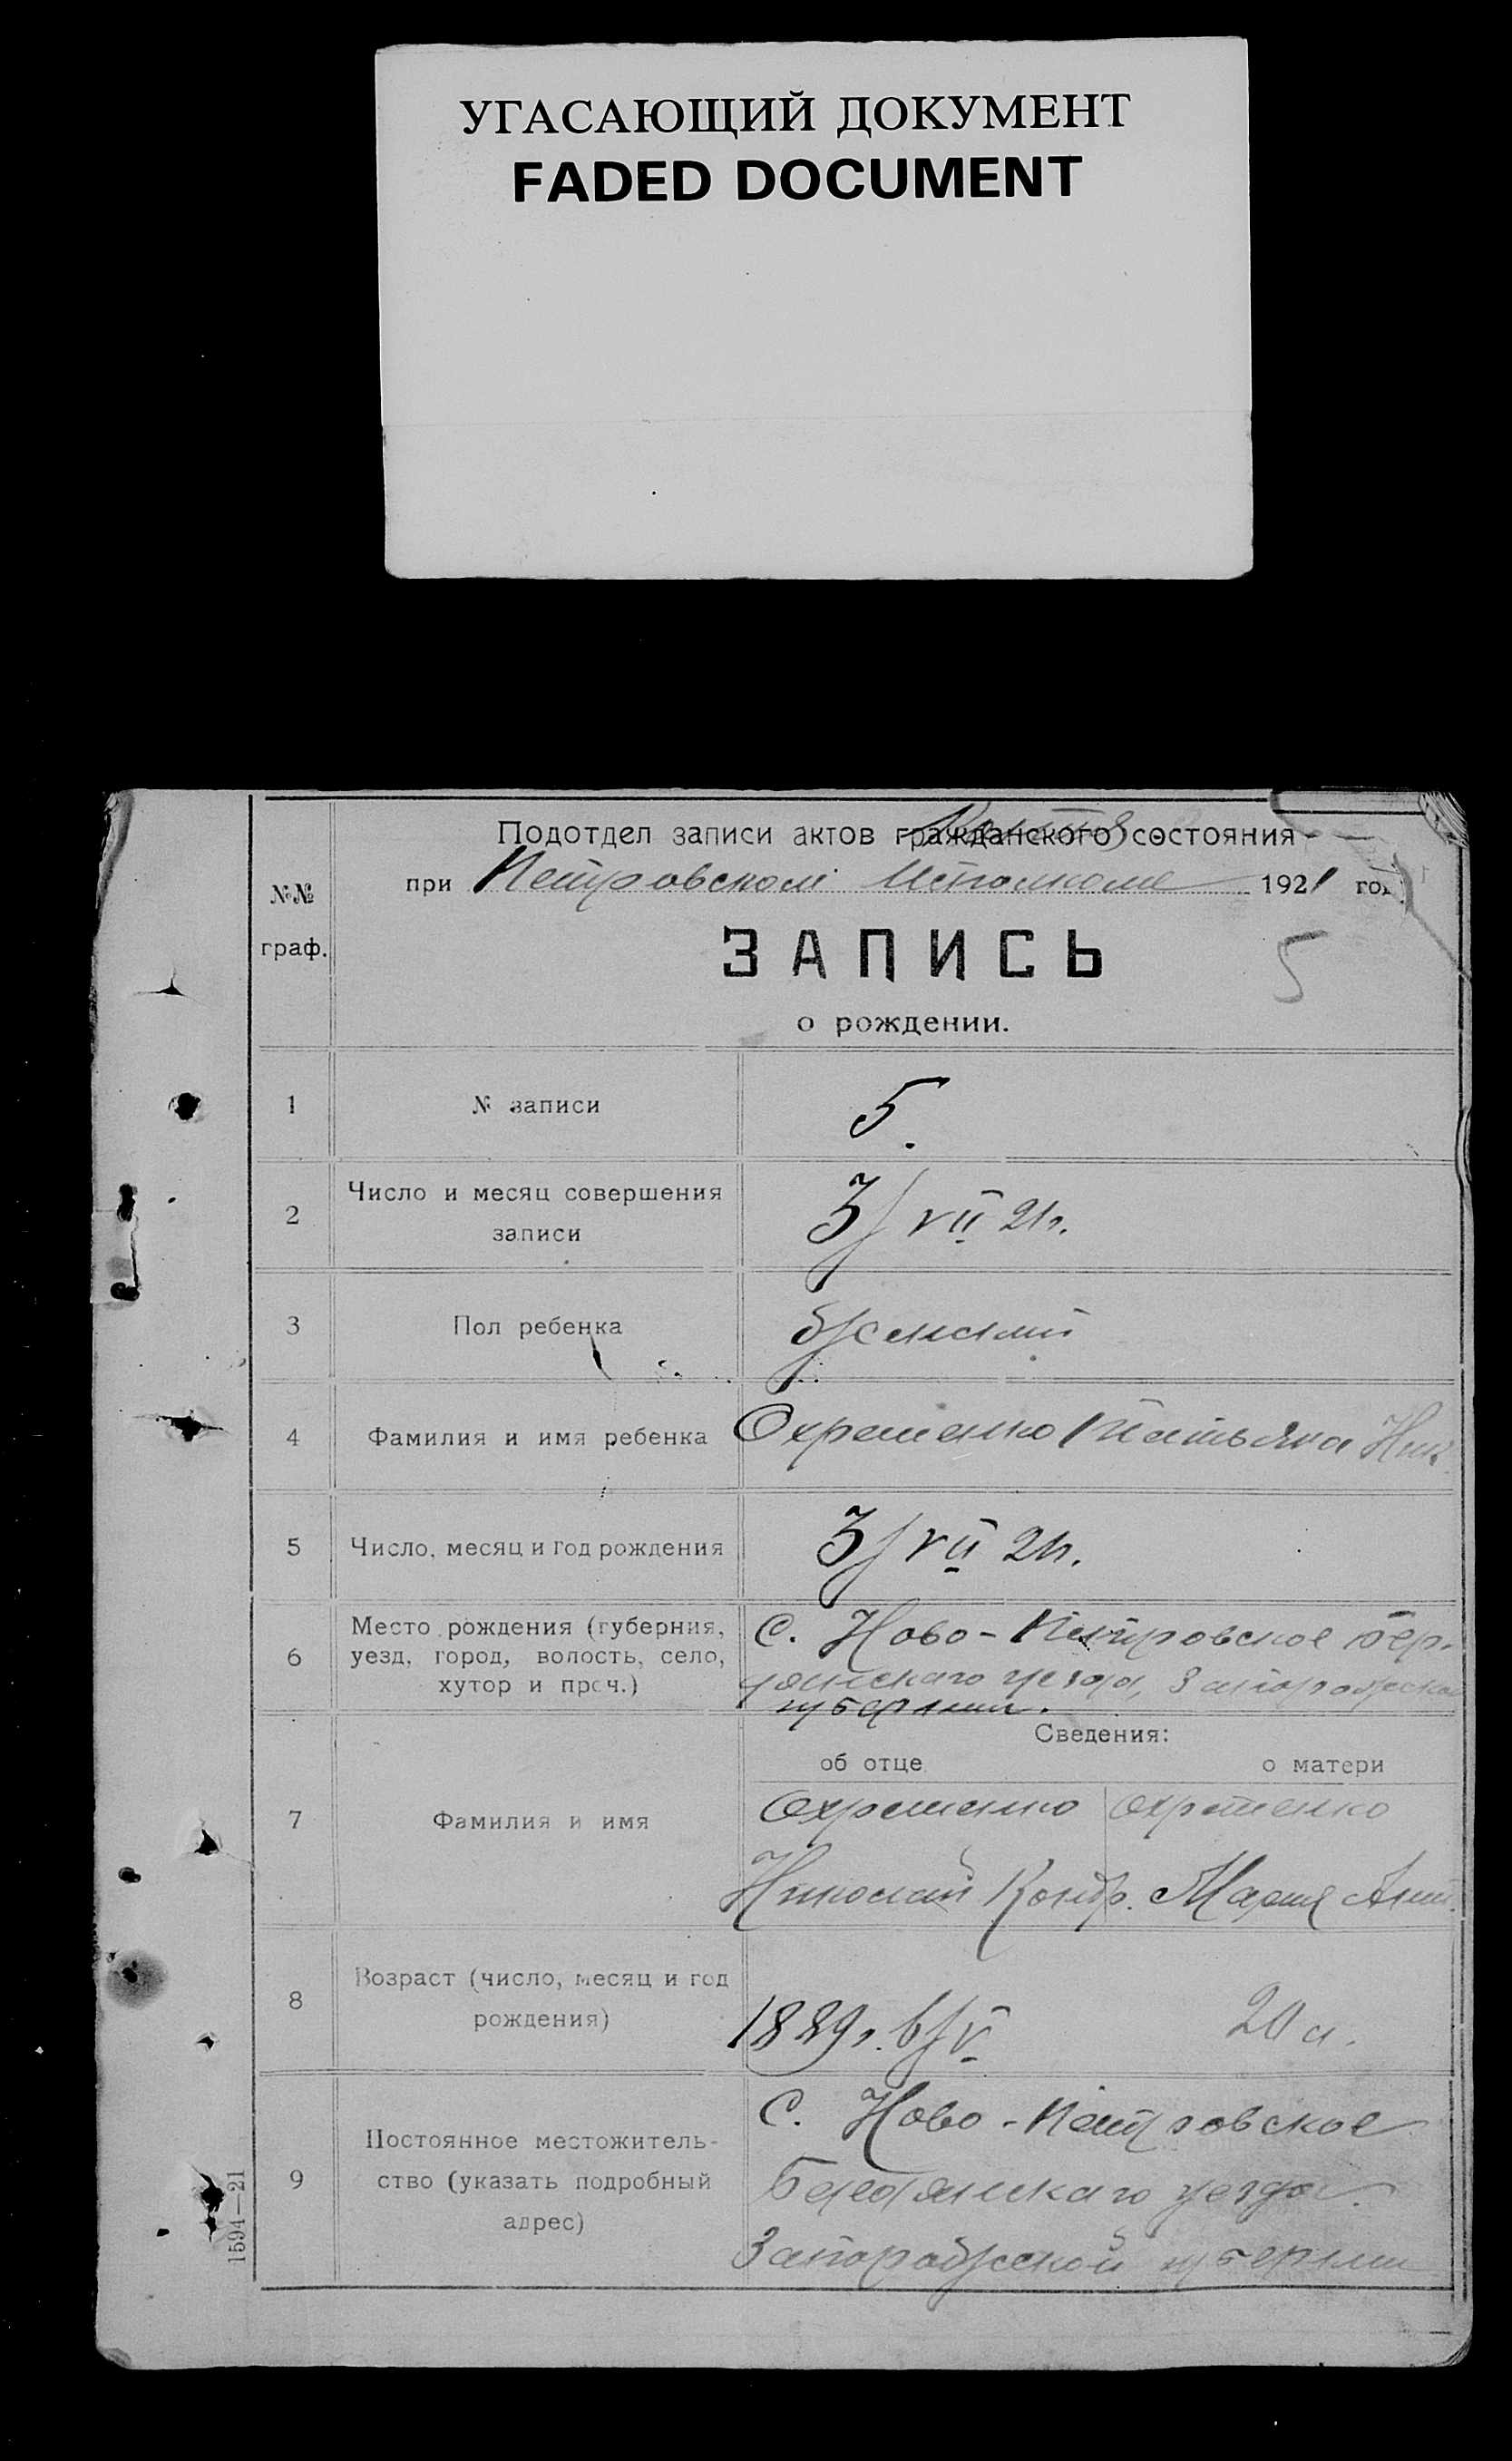 УГАСАЮЩИЙ ДОКУМЕНТ
FADED DOCUMENT
Подотдел записи актов гражданского состояния
при Петровском Исполкоме 1921 год
№№
граф.
ЗАПИСЬ
5
о рождении.
1 № записи 5.
2 Число и месяц совершения
записи
3/VII 21г.
3 Пол ребенка женский
4 Фамилия и имя ребенка Охременко Татьяна Ник
5 Число, месяц и год рождения 3/VII 21г.
6 Место рождения (губерния,
уезд, город, волость, село,
хутор и проч.)
С. Ново-Петровское Бер-
дянскаго уезда, Запорожской
губернии.
Сведения:
об отце о матери
7 Фамилия и имя
Охременко Охременко
Николай Кондр. Мария Ант.
8 Возраст (число, месяц и год
рождения)
1889г. 6/V 20 л.
9 Постоянное местожитель-
ство (указать подробный
адрес)
С. Ново-Петровское
Бердянскаго уезда
Запорожской губернии
1594—21